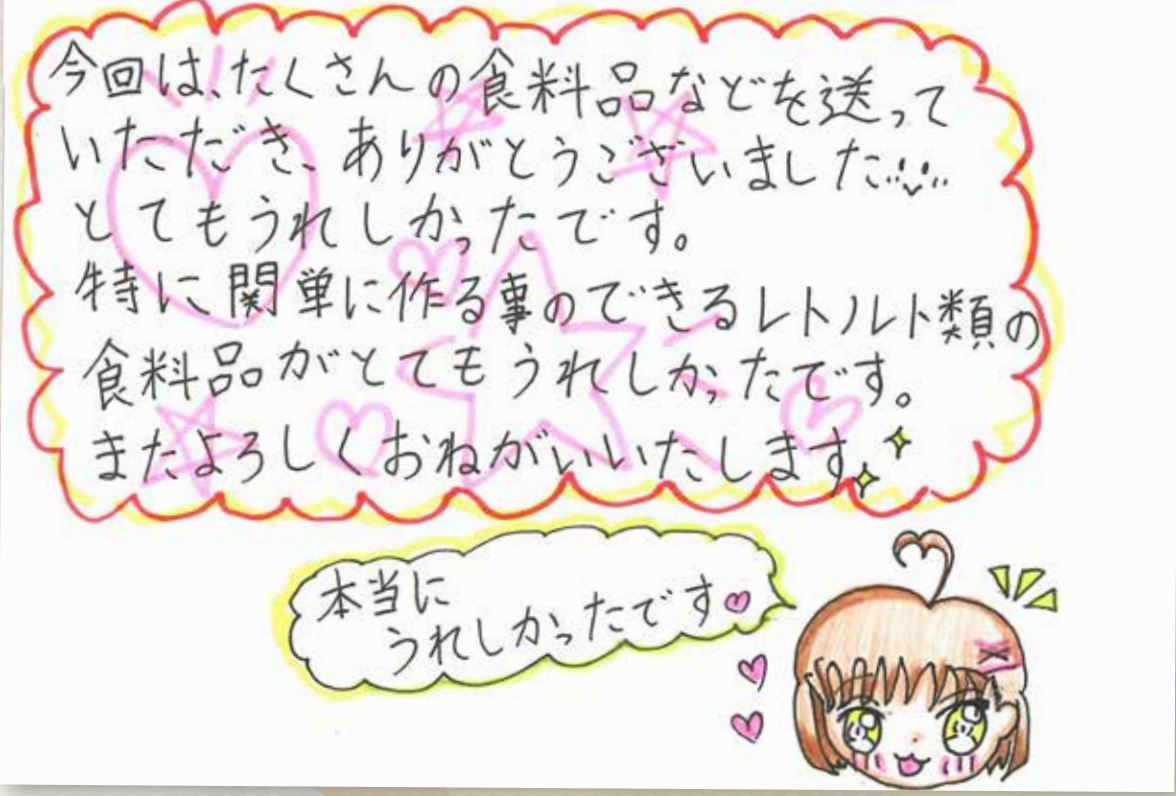 今回は、たくさんの食料品などを送って
いただき、ありがとうございました
とてもうれしかったです。
特に関単に作る事のできるレトルト類の
食料品がとてもうれしかったです。
またよろしくおねがいいたします。
本当に
うれしかったです